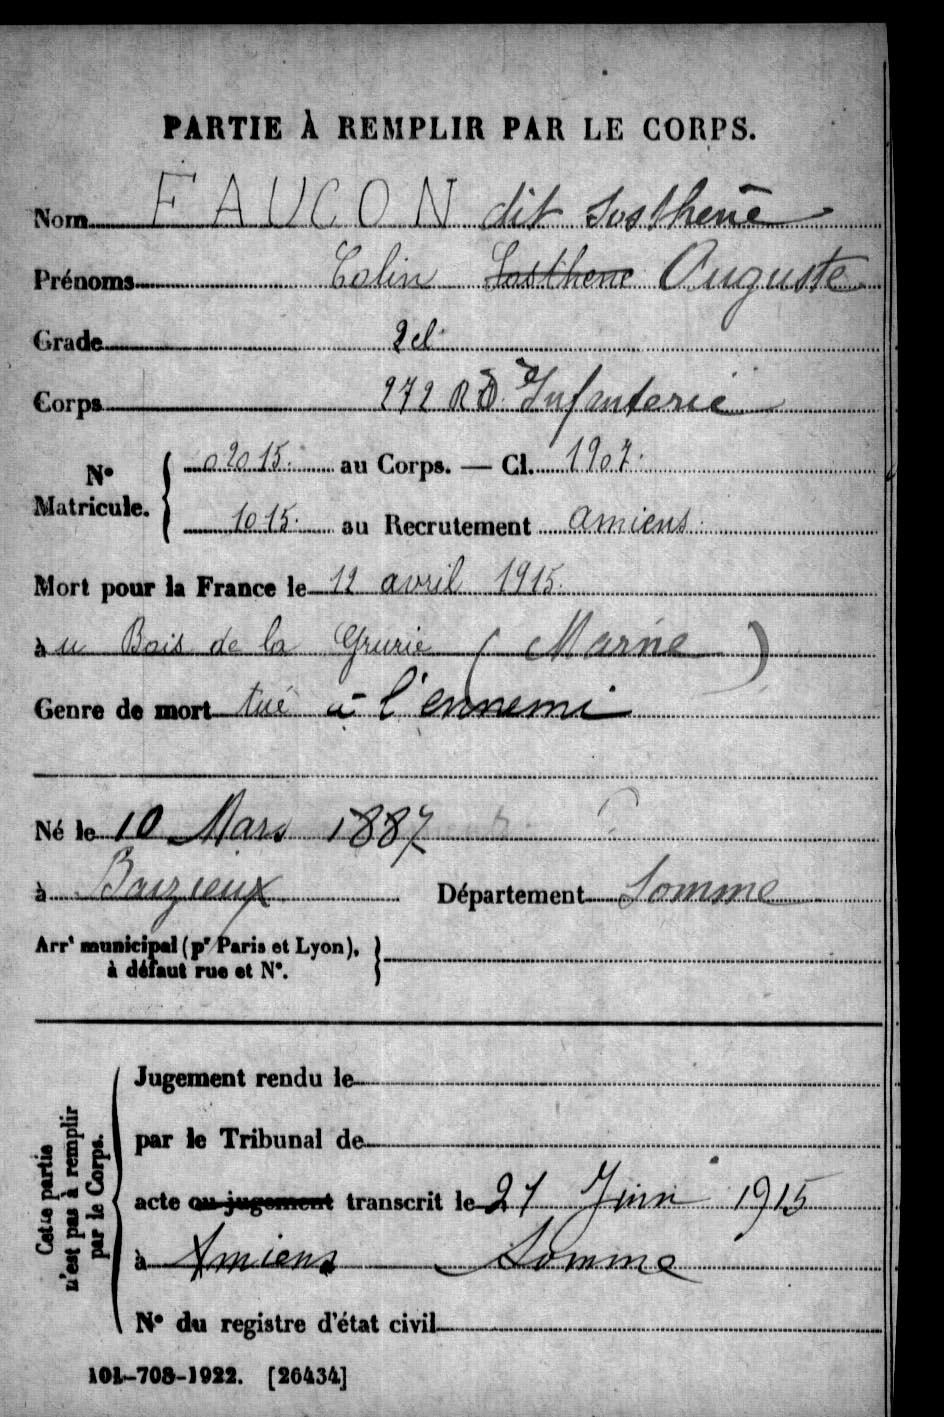 PARTIE À REMPLIR PAR LE CORPS.
Nom FAUCON dit Sosthène
Prénoms Colin Sosthene Auguste
Grade 2 cl.
Corps 272 RD d'Infanterie
N° Matricule. 02015. au Corps. — Cl. 1907.
1015. au Recrutement Amiens.
Mort pour la France le 12 avril 1915.
au Bois de la Grurie (Marne)
Genre de mort tué à l'ennemi
Né le 10 Mars 1887
à Baizieux Département Somme
Arrt municipal (pr Paris et Lyon),
à défaut rue et N°.
Cette partie n'est pas à remplir par le Corps.
Jugement rendu le
par le Tribunal de
acte ou jugement transcrit le 21 Juin 1915
à Amiens Somme
N° du registre d'état civil
101-708-1922. [26434]